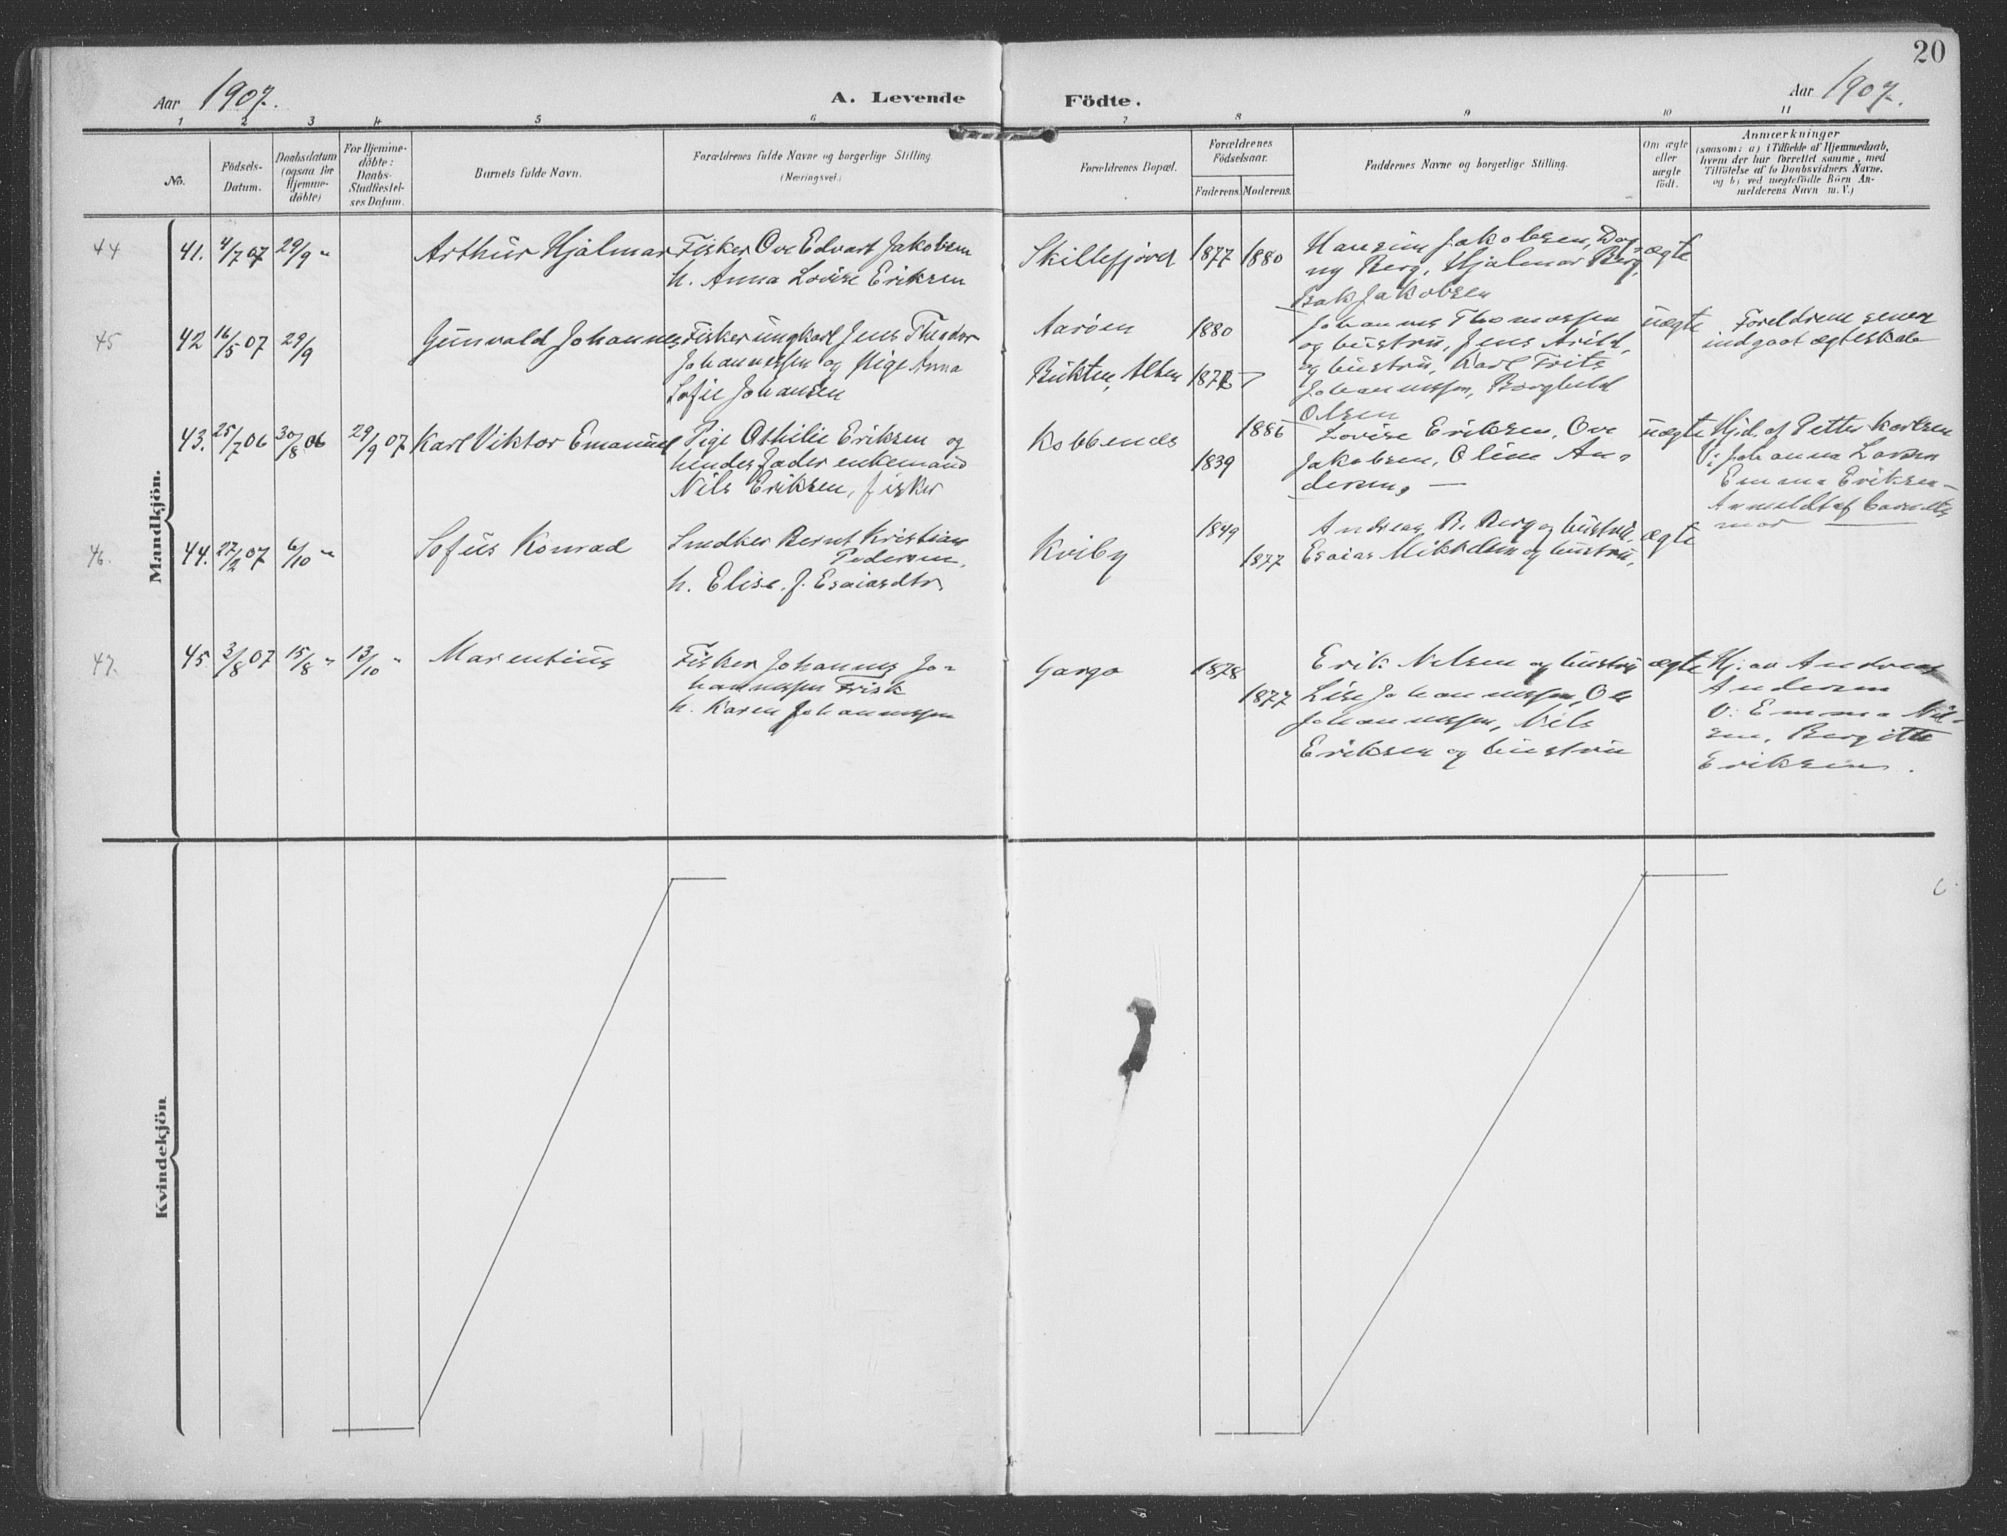 20
Aar 1907.
A. Levende
Födte.
Aar 1907.
1 2 3 4 5 6 7 8 9 10 11
No.
Födsels-
Datum.
Daabsdatum
(ogsaa for
Hjemme-
döbte)
For Hjemme-
döbte:
Daabs-
Stadfæstel-
ses Datum.
Barnets fulde Navn.
Forældrenes fulde Navne og borgerlige Stilling.
(Næringsvei.)
Forældrenes Bopæl.
Forældrenes
Födselsaar.
Faderens. Moderens.
Faddernes Navne og borgerlige Stilling.
Om ægte
eller
uægte
født.
Anmærkninger
(saasom: a) i Tilfælde af Hjemmedaab,
hvem der har forrettet samme, med
Tilföielse af to Daabsvidners Navne,
og b) ved uægtefödte Börn An-
melderens Navn m. V.)
Mandkjön.
44
41. 4/7 07 29/9 "
Arthur Hjalmar
Fisker Ove Edvart Jakobsen
h. Anna Lovise Eriksen
Skillefjord
1877 1880
Jakobsen, Dag-
ny Berg, Hjalmar Berg
Jakobsen
ægte
45
42 16/5 07 29/9
Gunvald Johannes
Fisker ungkarl Jens Theodor
Johannessen og Pige Anna
Sofie Johansen
Aarøen
Bukten, Alten
1880
Johannes Thomassen
og hustru, Jens Arild,
og hustru, Karl Frits
Johannessen, Borghild
Olsen
uægte
Foreldrene senere
indgaat ægteskab
43. 25/7 06 30/8 06 29/9 07
Karl Viktor Emanuel
Pige Othilie Eriksen og
hendes fader enkemand
Nils Eriksen, fisker
Kobbenes
1886
1839
Lovise Eriksen, Ove
Jakobsen, Oline An-
dersen, —
uægte
Hjd. af Petter Karlsen
V: Johanna Larsen
Emma Eriksen —
Anmeldt af barnets
mor
46.
44. 27/2 07 6/10 "
Sofus Konrad
Snedker Bernt Kristian
Pedersen,
h. Elise f. Esaiasdtr
Kviby
1849
1877
Andreas B. Berg og hustru,
Esaias Mikkelsen og hustru,
ægte
47.
45 3/8 07 15/8 " 13/10 "
Marentius
Fisker Johannes Jo-
hannessen Frisk
h. Karen Johannessen
Gargo
1878
1877
Erik Nilsen og hustru
Lise Johannessen, Ole
Johannessen, Nils
Eriksen og hustru
ægte
Hj. av Andreas
Andersen
V: Emma Nil-
sen, Bergitte
Eriksen.
Kvindekjön